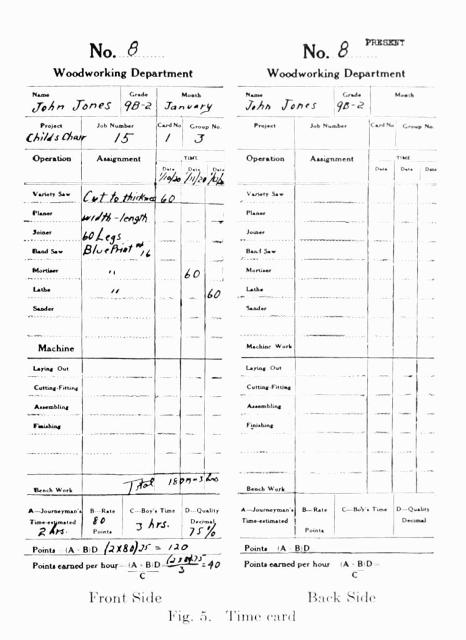 No. 8
Woodworking Department
Name Grade Month
John Jones 9B-2 January
Project Job Number Card No Group No.
Childs Chair 15 1 3
Operation Assignment TIME
Date Date Date
1/10/20 1/11/20
Variety Saw Cut to thickness 60
Planer width-length
Joiner 60 Legs
Band Saw Blue Print # 16
Mortiser " 60
Lathe " 60
Sander
Machine
Laying Out
Cutting-Fitting
Assembling
Finishing
Total 180m=3 hrs
Bench Work
A—Journeyman's B—Rate C—Boy's Time D—Quality
Time-estimated 80 3 hrs. Decimal
2 hrs. Points 75%
Points (A · B)D (2x80).75 = 120
Points earned per hour—(A · B)D (2x80).75 = 40
C 3
Front Side
No. 8 PRESENT
Woodworking Department
Name Grade Month
John Jones 9B-2
Project Job Number Card No Group No.
Operation Assignment TIME
Date Date Date
Variety Saw
Planer
Joiner
Band Saw
Mortiser
Lathe
Sander
Machine Work
Laying Out
Cutting-Fitting
Assembling
Finishing
Bench Work
A—Journeyman's B—Rate C—Boy's Time D—Quality
Time-estimated Decimal
Points
Points (A · B)D
Points earned per hour—(A · B)D=
C
Back Side
Fig. 5. Time card